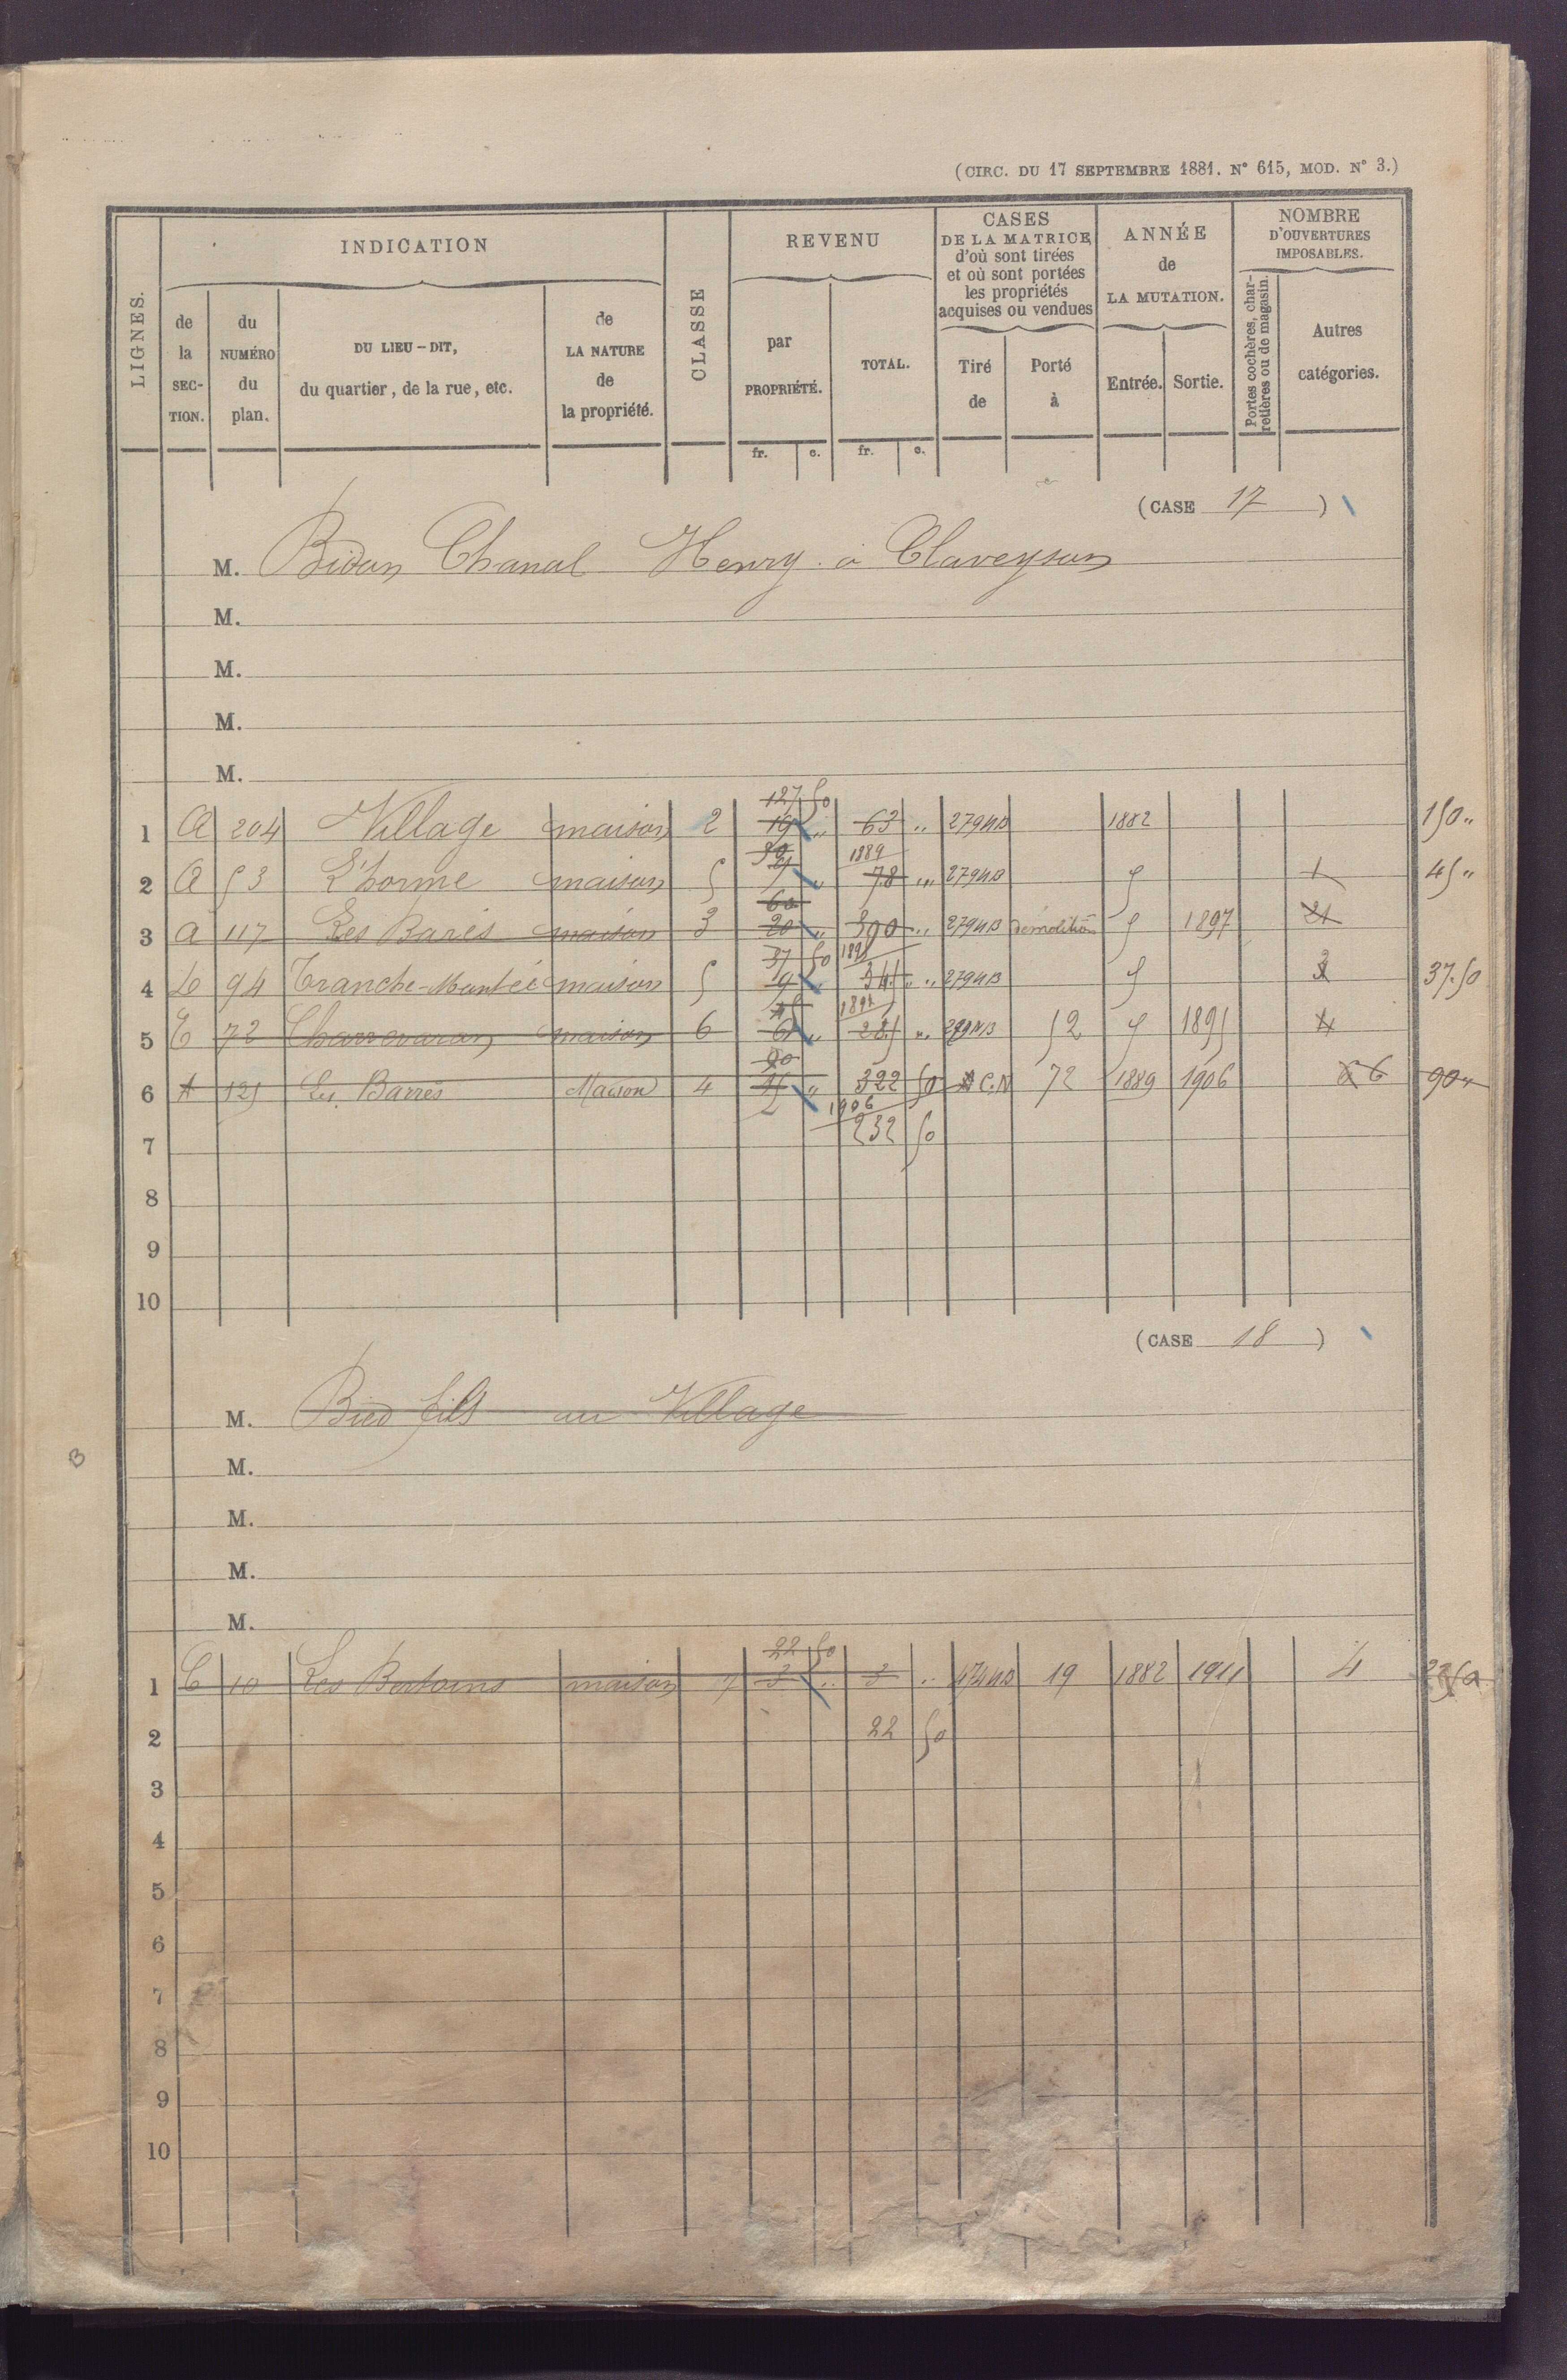 (CIRC. DU 17 SEPTEMBRE 1881. N° 615, MOD. N° 3.)
LIGNES.
INDICATION
de la SECTION.
du NUMÉRO du plan.
DU LIEU-DIT, du quartier, de la rue, etc.
de LA NATURE de la propriété.
CLASSE
REVENU
par PROPRIÉTÉ.
TOTAL.
CASES DE LA MATRICE d'où sont tirées et où sont portées les propriétés acquises ou vendues
Tiré de
Porté à
ANNÉE de LA MUTATION.
Entrée.
Sortie.
NOMBRE D'OUVERTURES IMPOSABLES.
Portes cochères, charretières ou de magasin.
Autres catégories.
fr. c. fr. c.
(CASE 17)
M. Bidan Chanal Henry à Claveyson
M.
M.
M.
M.
127 50
1 A 204 Village maison 2 19 " 63 " 279 NB 1882 150 "
30 1889
2 A 53 L'horme maison 5 " 78 " 279 NB 1 45 "
60
3 A 117 Les Barès maison 3 20 " 300 " 279 NB démolition 1897 21
37 50
4 94 Tranche-Montée maison 5 9 " " 279 NB 37.50
5 E 72 maison 6 6 " " 279 NB 52 1895 4
90
6 A 125 Les Barres Maison 4 " 322 50 C.N 72 1889 1906 6 90 "
1906
7 232 50
8
9
10
(CASE 18)
M. Bied fils au Village
M.
B
M.
M.
M.
22 50
1 C 10 Les Bertoins maison 7 3 " 3 " 19 1882 1911 4 22 50
2 22 50
3
4
5
6
7
8
9
10